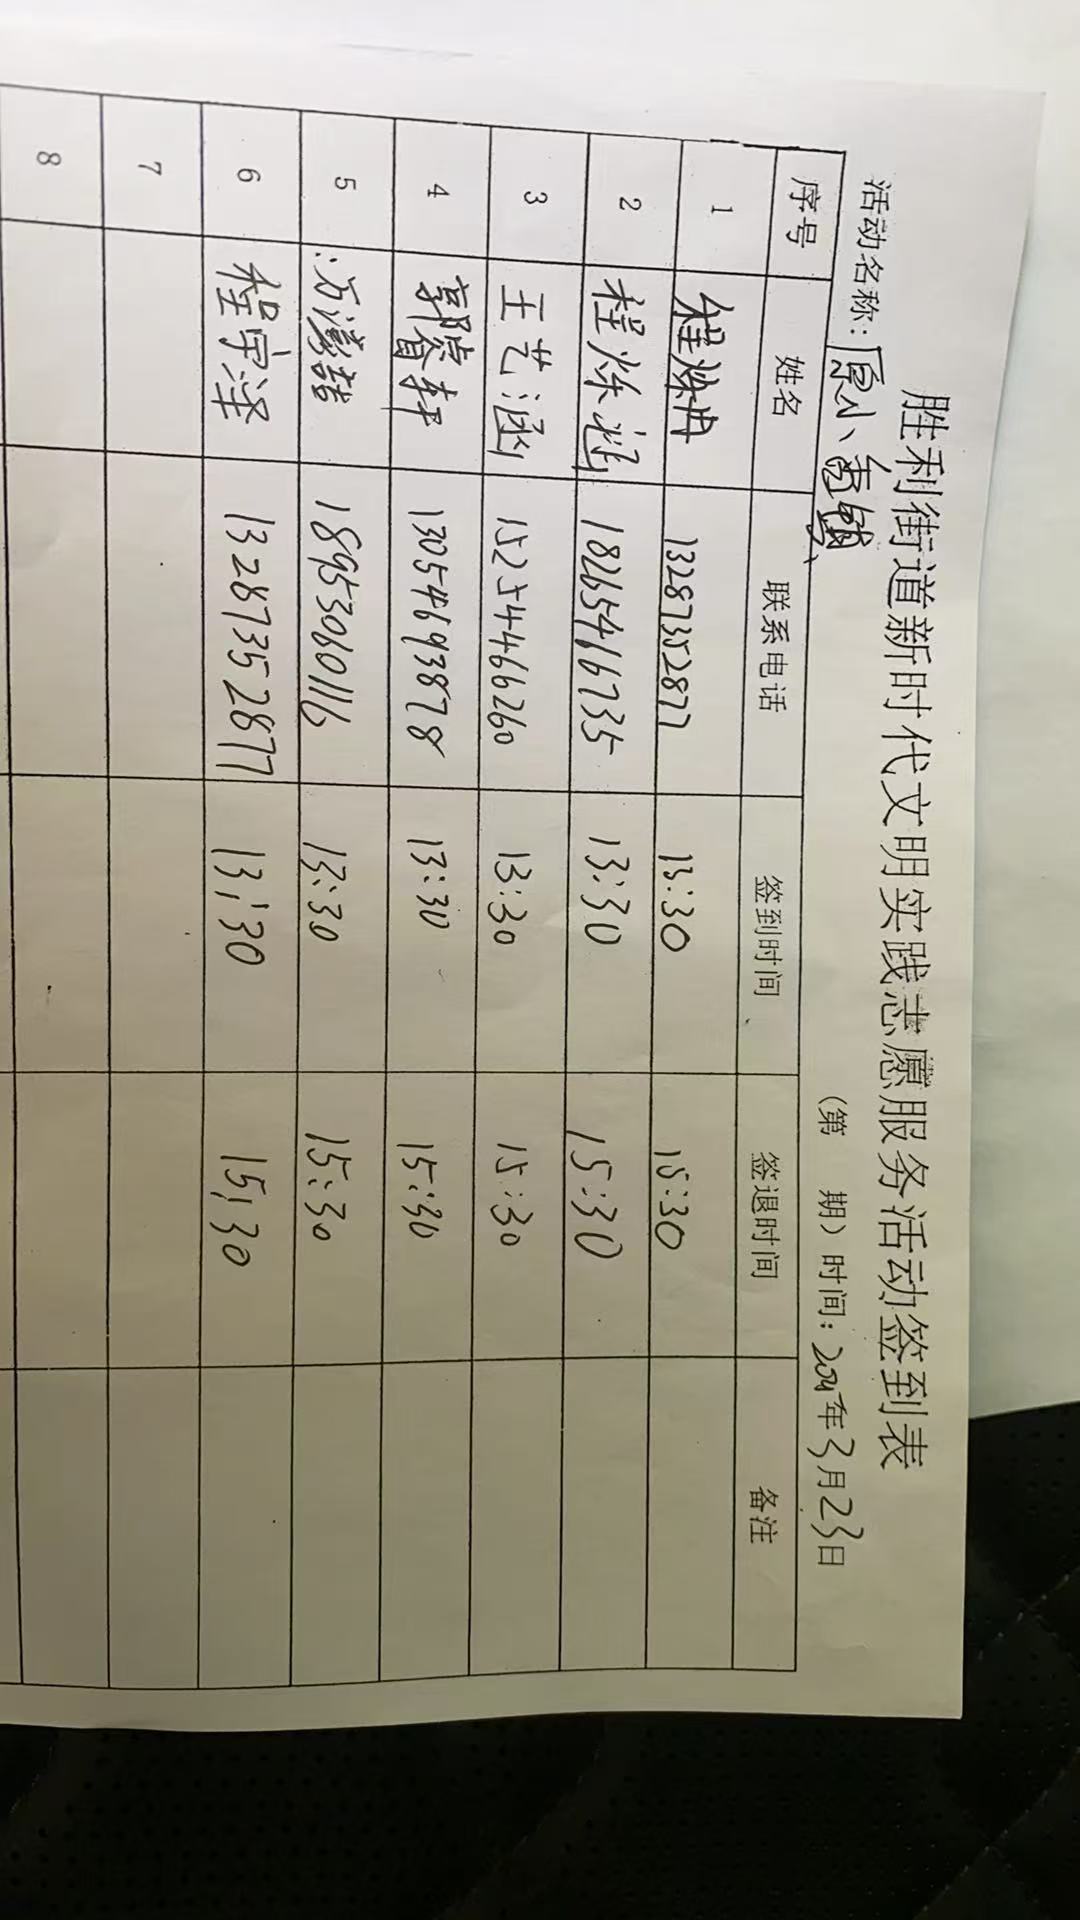 胜利街道新时代文明实践志愿服务活动签到表
活动名称: (第 期) 时间: 年3月23日
序号 姓名 联系电话 签到时间 签退时间 备注
1 程炼冉 13287352877 13:30 15:30
2 程炼 18265416735 13:30 15:30
3 王艺涵 15254466260 13:30 15:30
4 郭睿轩 13054693878 13:30 15:30
5 18953060116 13:30 15:30
6 程宇泽 13287352877 13:30 15:30
7
8